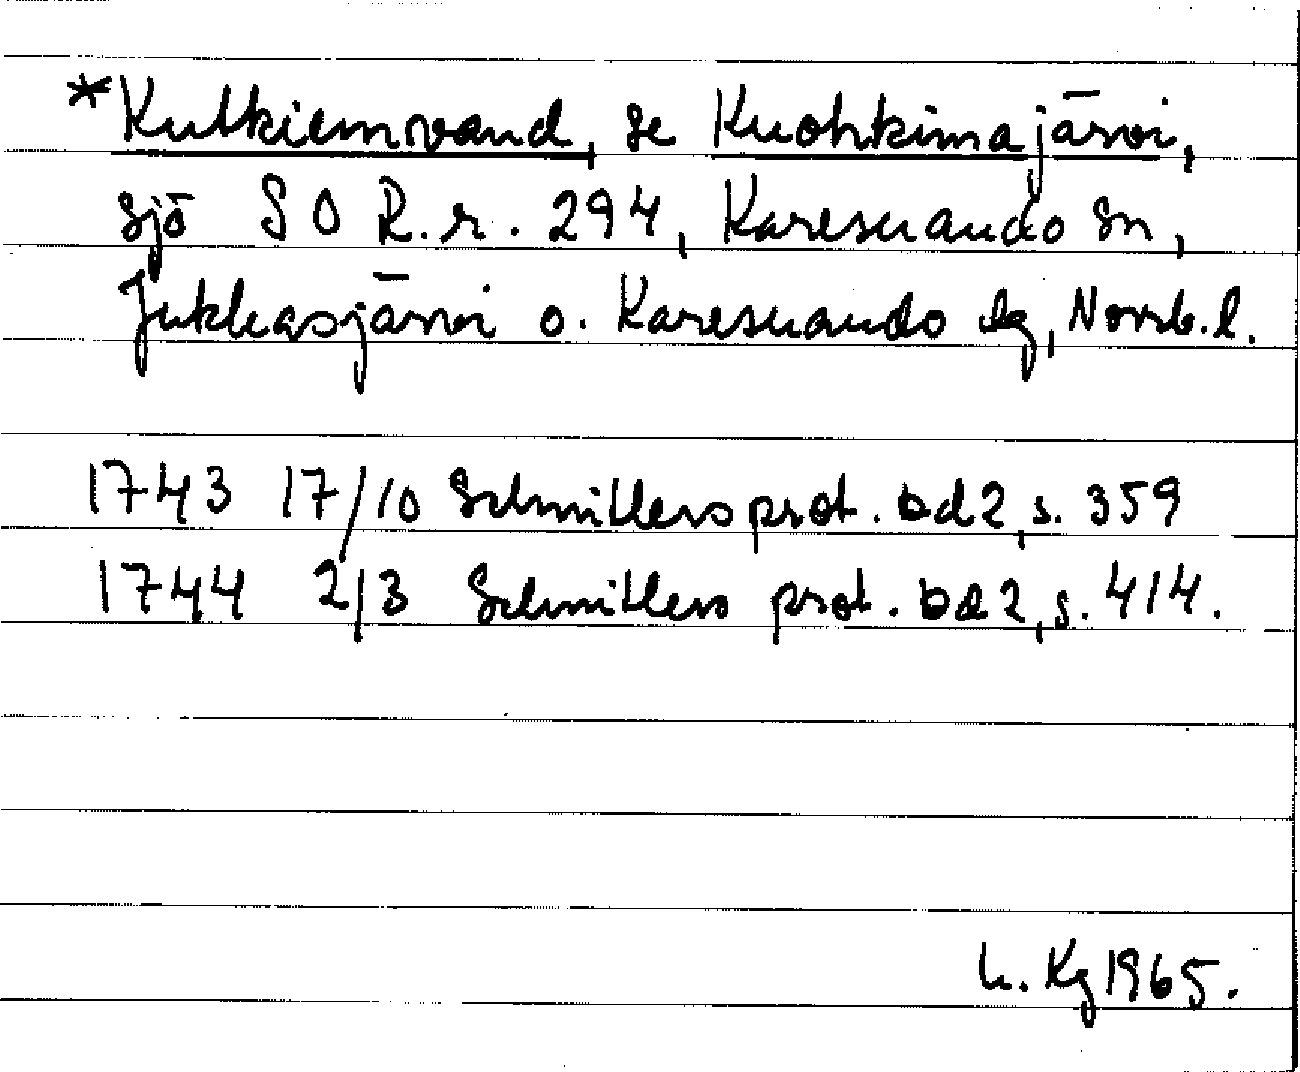 *Kulkiemvand, se Kuohkimajärvi,
sjö SO R.r. 294, Karesuando sn,
Jukkasjärvi o. Karesuando lg, Norrb.l.
1743 17/10 Schnitlers prot. bd 2, s. 359
1744 2/3 Schnitlers prot. bd 2, s. 414.
L. Kg 1965.